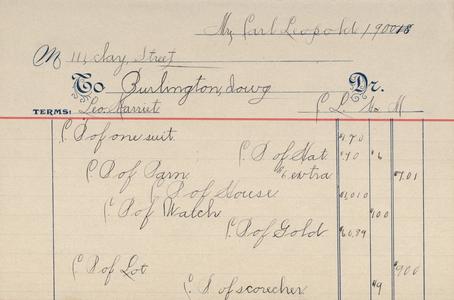 Mr. Carl Leopold 1900
M 111 Clay, Street
To Burlington, Iowa Dr.
TERMS: Leo. Harriet C L M
C P of one suit. $170
C P of Hat $70 $6
C P of Parn extra $7.01
C P of House $1,010
C P of Watch 100
C P of Gold $60.39
C P of Lot $900
C P of scorecher $9